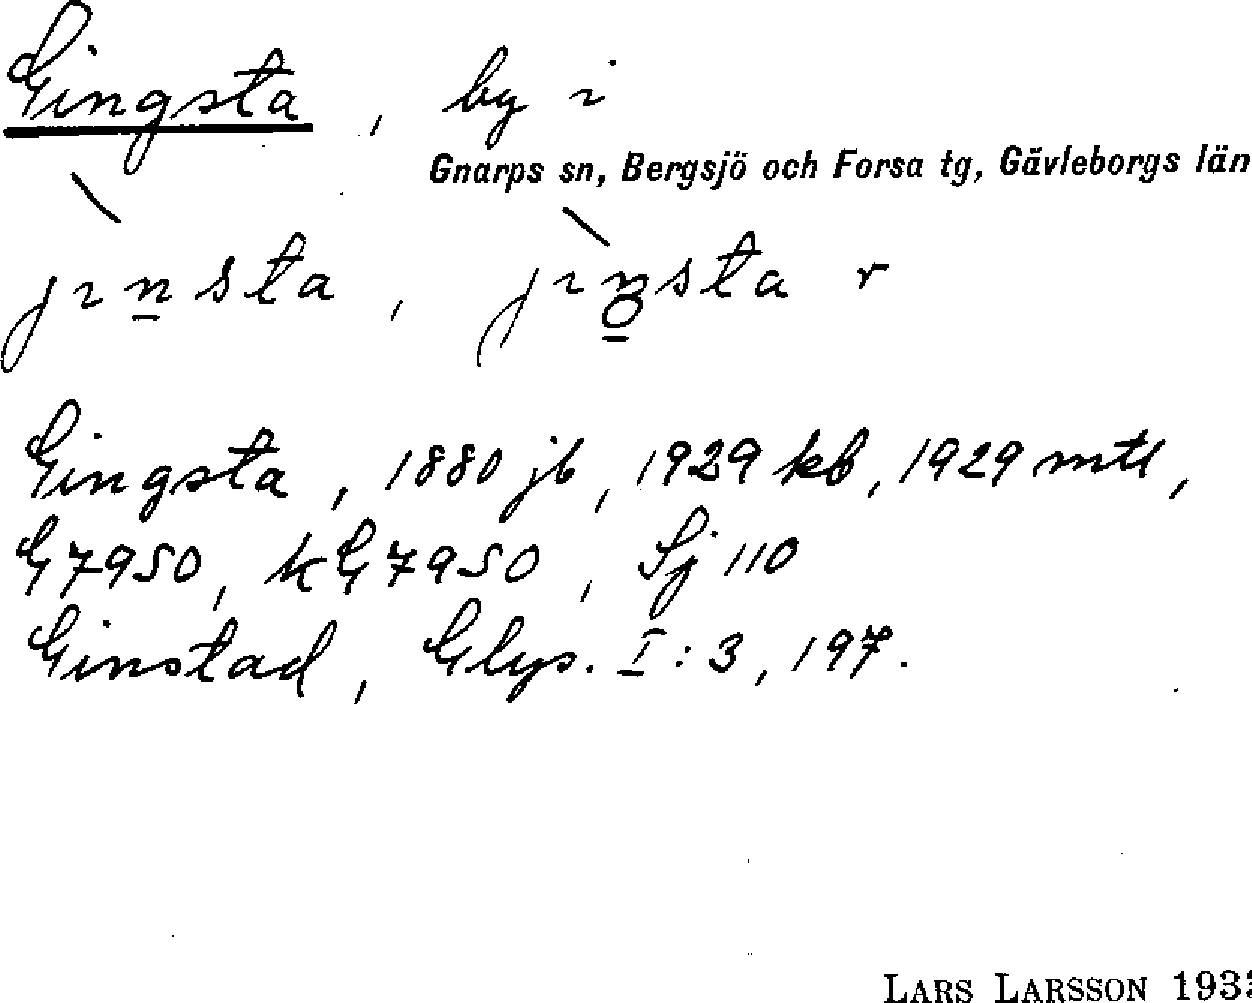 Gingsta, by i
Gnarps sn, Bergsjö och Forsa tg, Gävleborgs län
Gingsta, 1880 jb, 1929 kb, 1929 mtl,
G7950, kG7950, Sj 110
Ginstad, Glys. I:3, 197.
LARS LARSSON